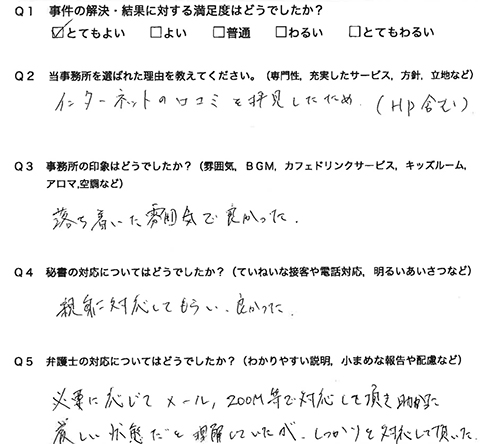 Q1 事件の解決・結果に対する満足度はどうでしたか?
☑とてもよい □よい □普通 □わるい □とてもわるい
Q2 当事務所を選ばれた理由を教えてください。(専門性，充実したサービス，方針，立地など)
インターネットの口コミを拝見したため.(Hp含む)
Q3 事務所の印象はどうでしたか?(雰囲気，BGM，カフェドリンクサービス，キッズルーム，
アロマ,空調など)
落ち着いた雰囲気で良かった.
Q4 秘書の対応についてはどうでしたか?(ていねいな接客や電話対応，明るいあいさつなど)
親身に対応してもらい、良かった.
Q5 弁護士の対応についてはどうでしたか?(わかりやすい説明，小まめな報告や配慮など)
必要に応じてメール，ZOOM等で対応して頂き助かった
厳しい状態だと理解していたが、しっかりと対応して頂いた.